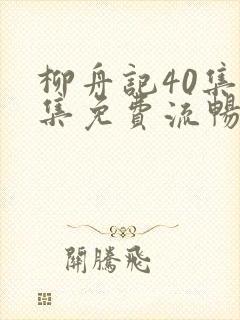 柳舟記40集
集免費流暢
開騰飛